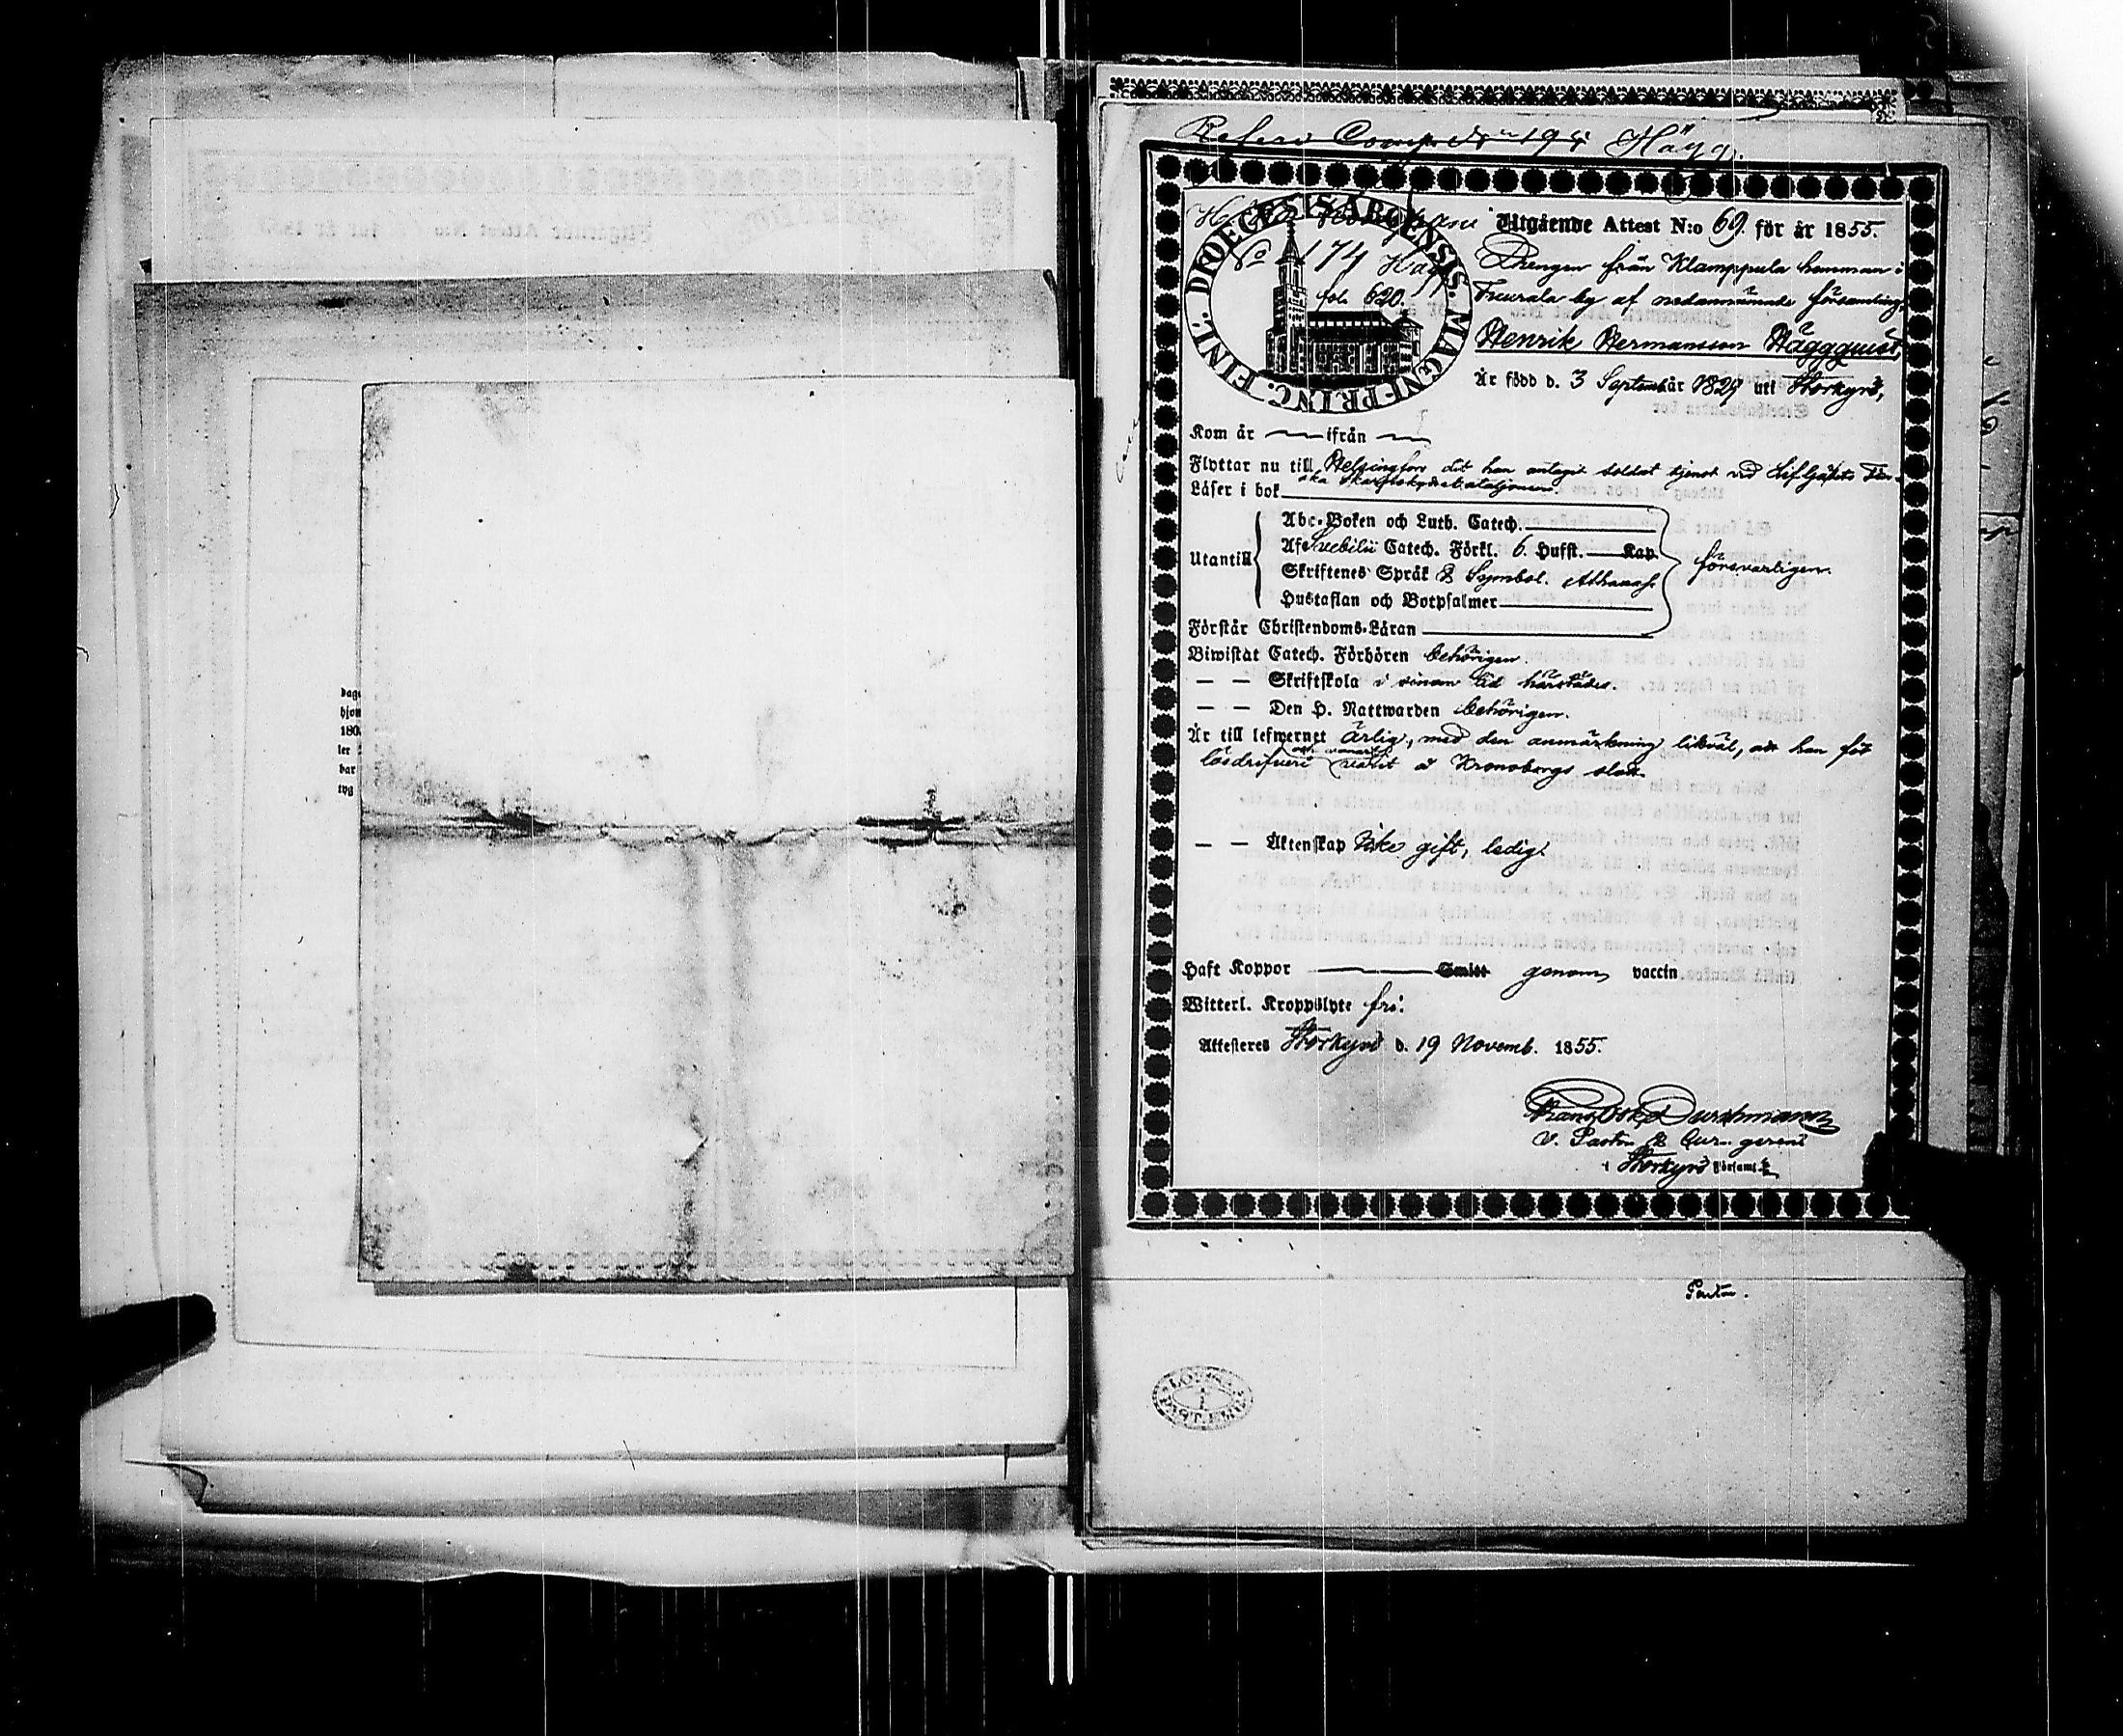 Utgående Attest N:o 69. för år 1855.
N:o 174 Hägg
fol. 620.
FINL. DIOECESIS ABOENSIS. MAGNI-PRINC.
Drengen från Klamppula hemman i
by af nedannämnde församling,
Henrik Hermansson Häggquist,
Är född d. 3 September 1827 uti Storkyrö,
Kom år — ifrån —
Flyttar nu till Helsingfors dit han antagit soldat tjenst vid Lif Gardets Fin-
ska Skarpskytte bataljonen.
Läser i bok
Utantill
Abc-Boken och Luth. Catech.
Af Svebilii Catech. Förkl. 6. Hufst. — Kap
Skriftenes Språk & Symbol. Athanas.
försvarligen.
Hustaflan och Botpsalmer
Förstår Christendoms-Läran
Biwistat Catech. Förhören behörigen.
— — Skriftskola i sinom tid härstädes.
— — Den H. Nattwarden behörigen.
Är till lefwernet ärlig, med den anmärkning likväl, att han för
lösdrifveri suttit å Kronoborgs slott.
— — Äktenskap Icke gift, ledig.
Haft Koppor — Smitt genom vaccin.
Witterl. Kroppslyte fri.
Attesteras Storkyrö d. 19 Novemb. 1855.
Frans Oskar Durchman
v. Pastor & Cur. gerens
i Storkyrö Församl.
Pastor.
dage
180
ler
bar
tyg